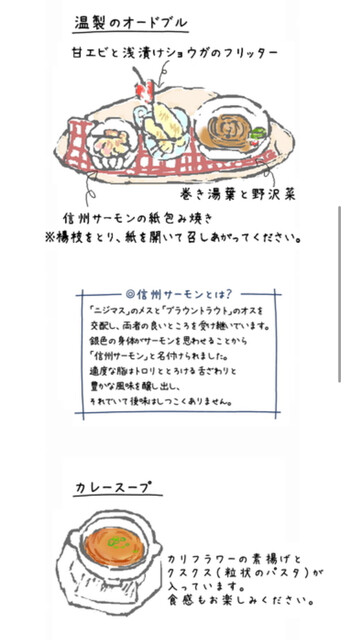 温製のオードブル
甘エビと浅漬けショウガのフリッター
巻き湯葉と野沢菜
信州サーモンの紙包み焼き
※楊枝をとり、紙を開いて召しあがってください。
◎信州サーモンとは?
「ニジマス」のメスと「ブラウントラウト」のオスを
交配し、両者の良いところを受け継いでいます。
銀色の身体がサーモンを思わせることから
「信州サーモン」と名付けられました。
適度な脂はトロリととろける舌ざわりと
豊かな風味を醸し出し、
それでいて後味はしつこくありません。
カレースープ
カリフラワーの素揚げと
クスクス(粒状のパスタ)が
入っています。
食感もお楽しみください。